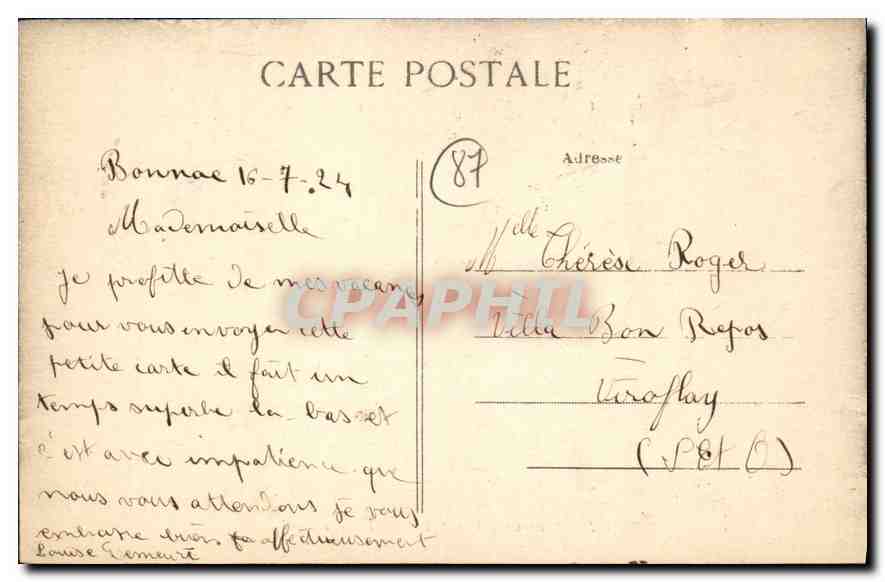 CARTE POSTALE
Bonnac 16-7-24
Mademoiselle
Je profitte de mes vacances
pour vous envoyer cette
petite carte il fait un
temps superbe la-bas et
c'est avec impatience que
nous vous attendons je vous
embrasse bien affectueusement
Louise
87
Adresse
Melle Thérèse Roger
Villa Bon Repos
Viroflay
(S Et O)
CPAPHIL